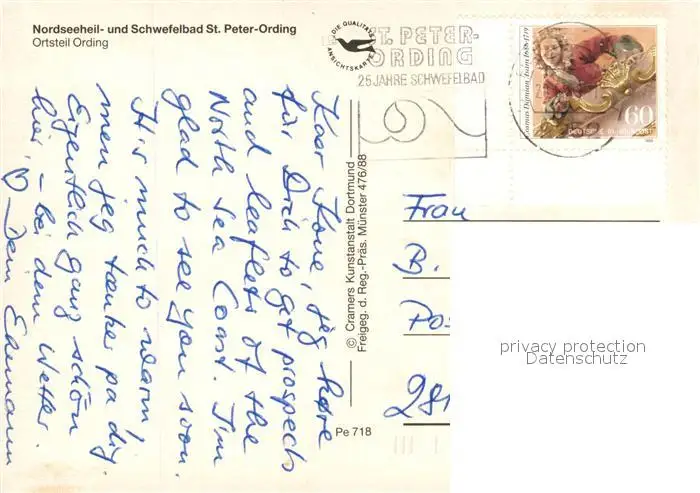 Nordseeheil- und Schwefelbad St. Peter-Ording
Ortsteil Ording
DIE QUALITÄTS
ANSICHTSKARTE
ST. PETER-
ORDING
25 JAHRE SCHWEFELBAD
Cosmas Damian Asam 1686-1739
60
DEUTSCHE BUNDESPOST
Kaer Kone, jeg køre
für Dich to get prospects
and leaflets of the
North Sea Coast. I'm
glad to see you soon.
It's much to warm,
men jeg tænker pa dig.
Eigentlich ganz schön
hier, – bei dem Wetter.
Dein Ehemann
© Cramers Kunstanstalt Dortmund
Freigeg. d. Reg.-Präs. Münster 476/88
Pe 718
Frau
B.
Po
281
privacy protection
Datenschutz